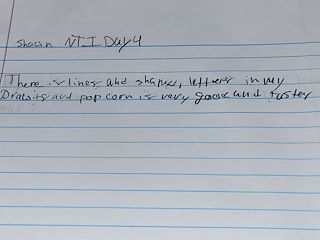 shawn NTI Day 4
There is lines and shapes, letters in my
Drawing and popcorn is very goose and taster